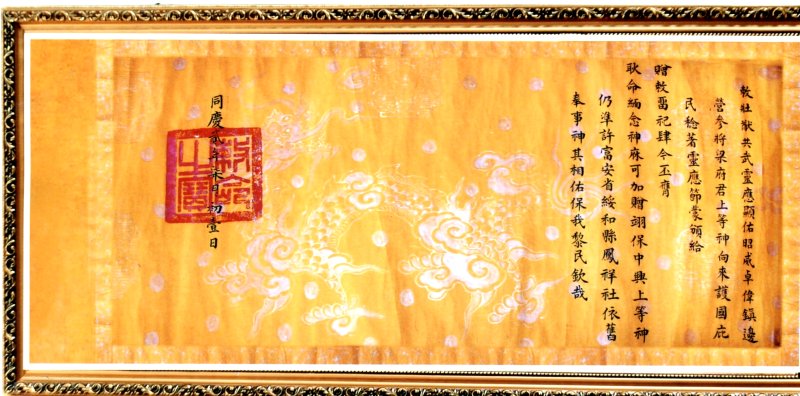 敕壮猷共武靈應顯佑昭威卓偉鎮邊
營參將梁府君上等神向來護國庇
民稔著靈應節蒙頒給
贈敕留祀肆今丕膺
耿命緬念神庥可加贈翊保中興上等神
仍準許富安省綏和縣鳳祥社依舊
奉事神其相佑保我黎民欽哉
同慶貳年柒月初壹日
敕命之寶